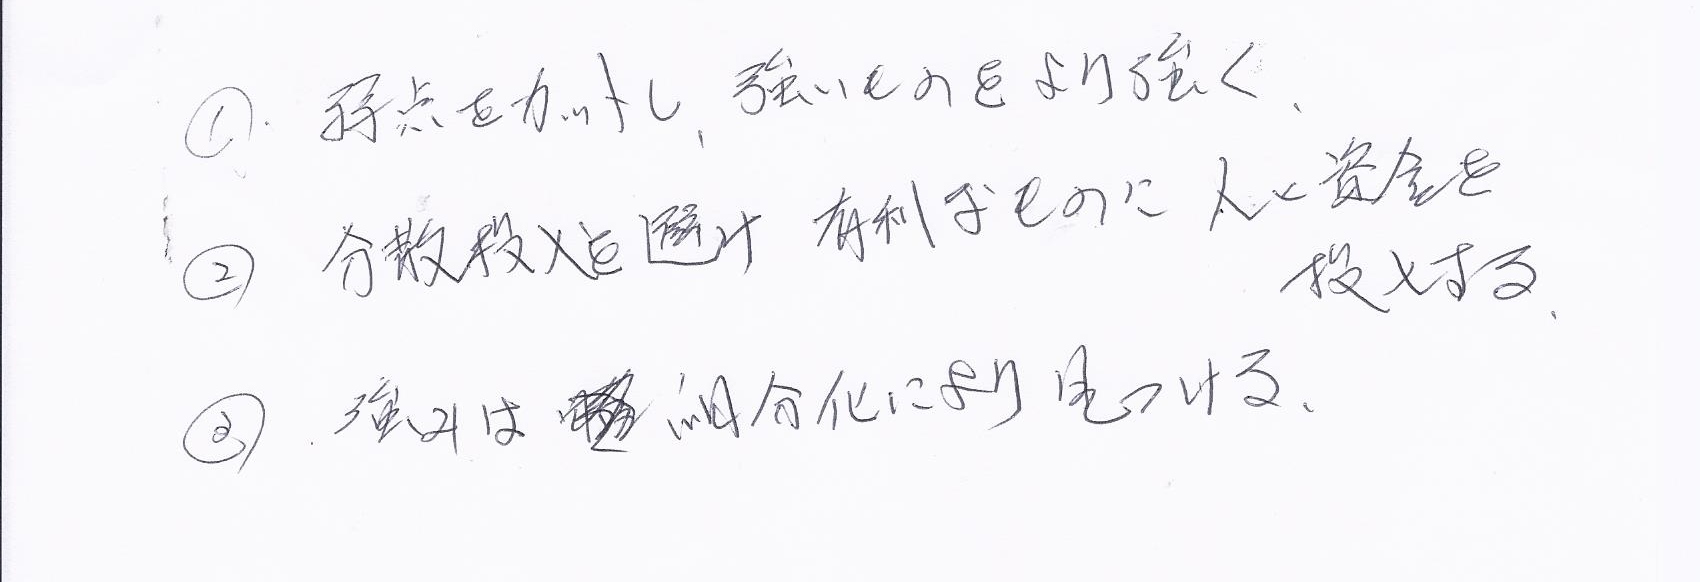 ① 弱点をカットし、強いものをより強く、
② 分散投入を避け 有利なものに 人と資金を
投入する、
③ 強みは 細分化により 見つける、